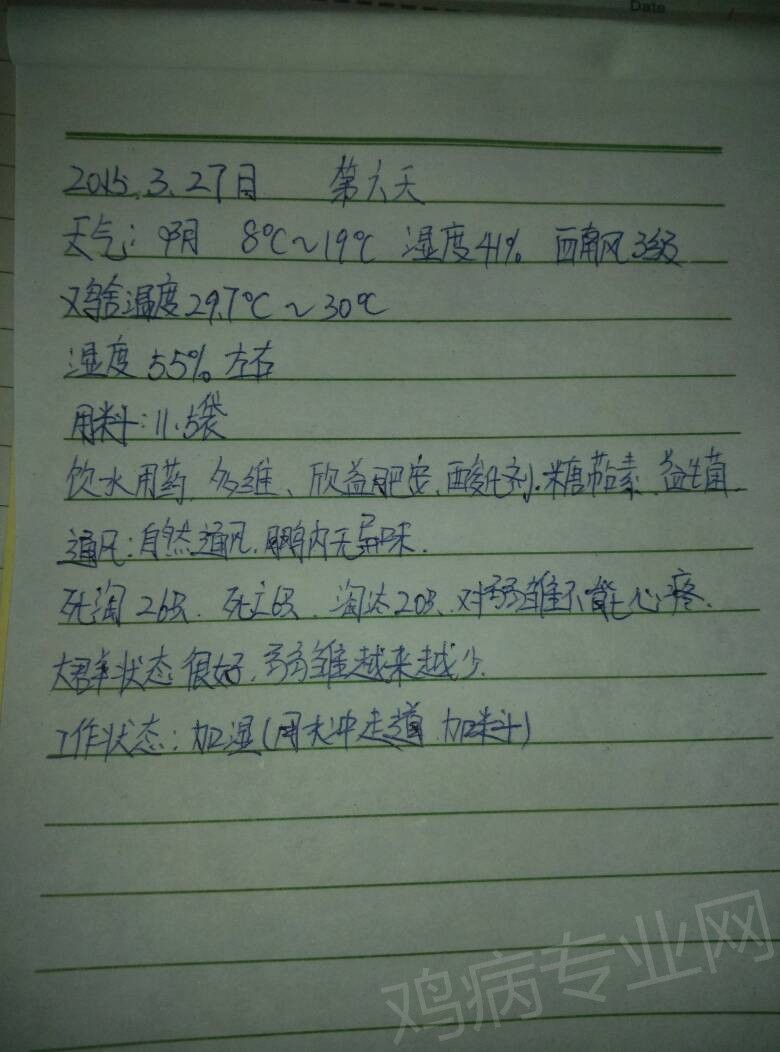 Date
2015.3.27日 第六天
天气: 阴 8℃~19℃ 湿度41% 西南风3级
鸡舍温度29.7℃~30℃
湿度55%左右
用料:11.5袋
饮水用药 多维、欣益肥安、酸化剂.黄芪多糖
通风:自然通风,鸭内无异味.
死淘26只.死亡6只.淘汰20只.对弱雏不能心疼.
大群状态很好.弱雏越来越少.
工作状态:加湿(用水冲走道 加料)
鸡病专业网